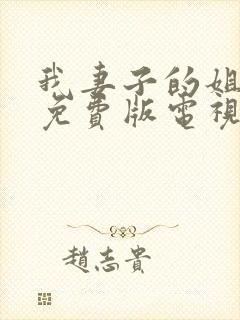 我妻子的姐
免費版電視
趙志貴